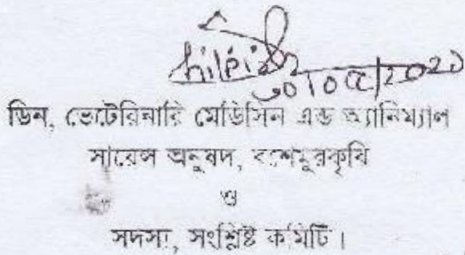 ডিন, ভেটেরিনারি মেডিসিন এন্ড অ্যানিম্যাল
সায়েন্স অনুষদ, বশেমুরকৃবি
ও
সদস্য, সংশ্লিষ্ট কমিটি।